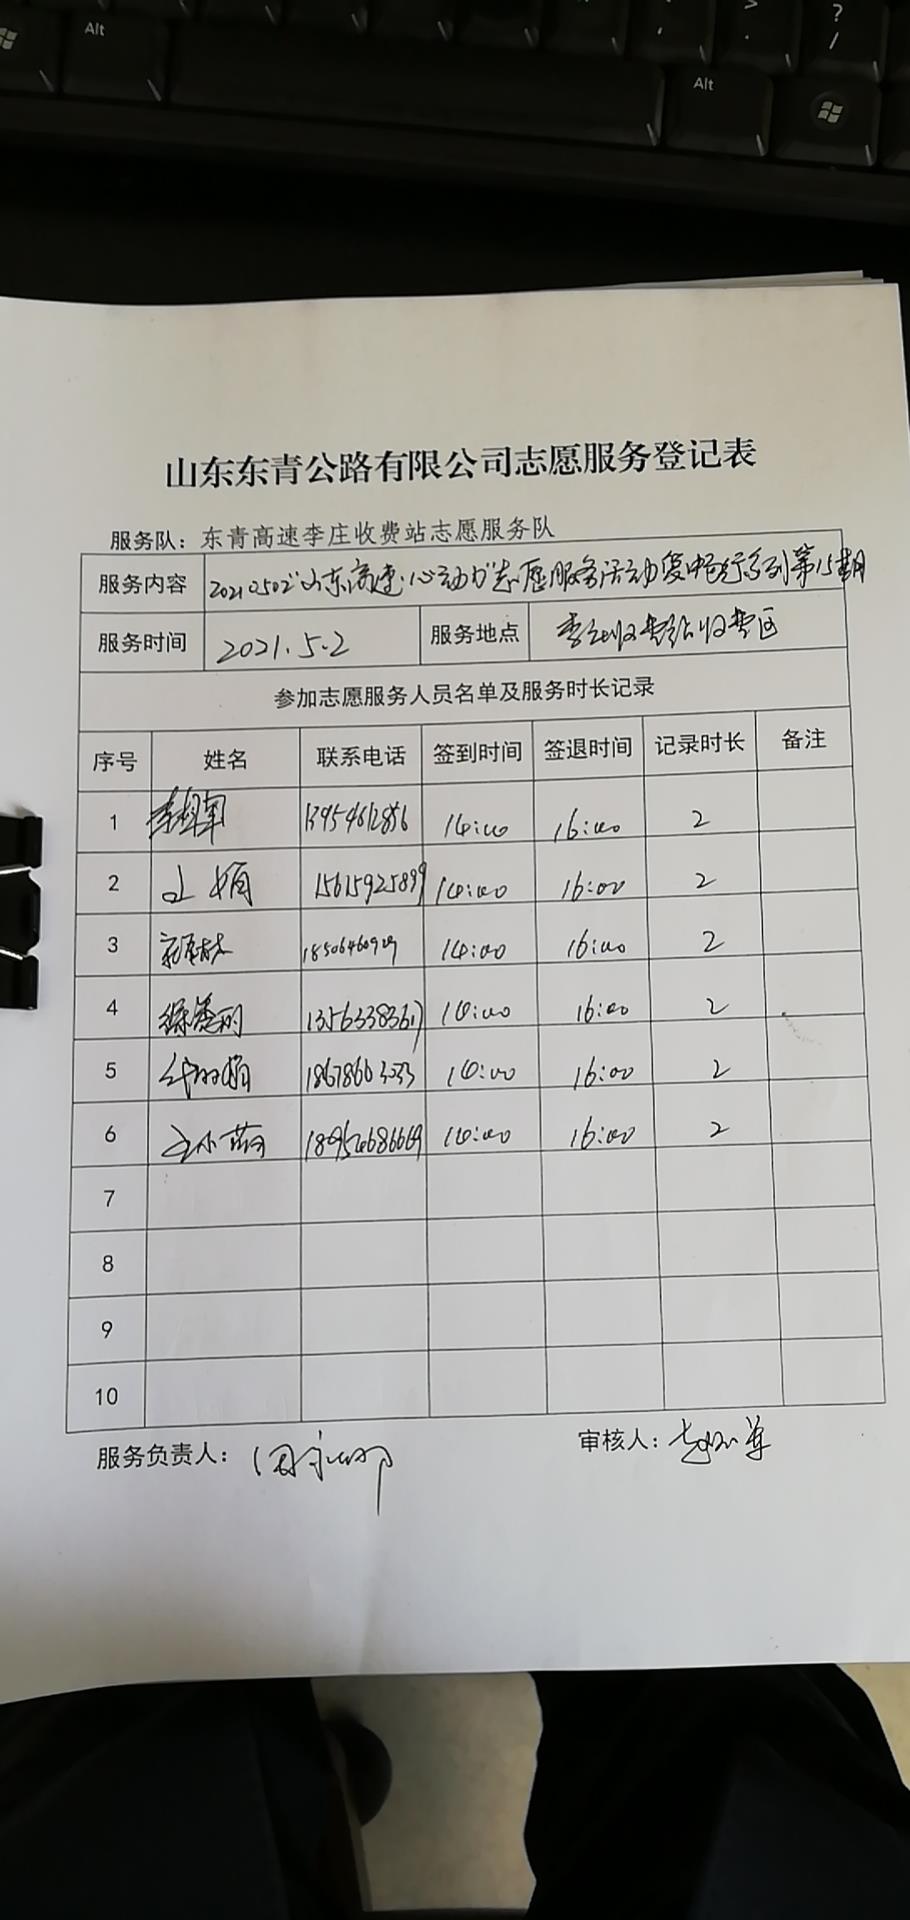 Alt
Alt
?
/
山东东青公路有限公司志愿服务登记表
服务队：东青高速李庄收费站志愿服务队
服务内容 20210502"山东高速·心动力"志愿服务活动爱畅行系列第15期
服务时间 2021.5.2 服务地点 李庄收费站收费区
参加志愿服务人员名单及服务时长记录
序号 姓名 联系电话 签到时间 签退时间 记录时长 备注
1 13954612856 14:00 16:00 2
2 娟 15615925899 14:00 16:00 2
3 18506460929 14:00 16:00 2
4 13563383617 14:00 16:00 2
5 18678663033 14:00 16:00 2
6 王小茹 18954686669 14:00 16:00 2
7
8
9
10
服务负责人： 审核人：